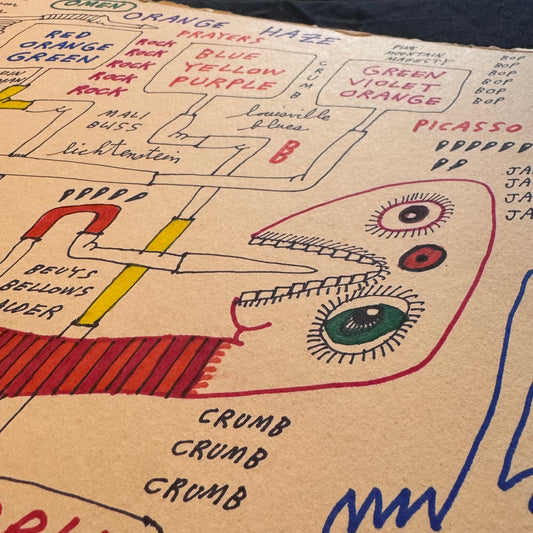 OMEN
ORANGE HAZE
RED
ORANGE
GREEN
ROCK
ROCK
ROCK
ROCK
PRAYERS
BLUE
YELLOW
PURPLE
CRUMB
PINK
MOUNTAIN
MAJESTY
GREEN
VIOLET
ORANGE
BOP
BOP
BOP
BOP
MALI
BLISS
lichtenstein
louisville
blues
B
B
PICASSO
PPPPPPP
PP
JA
JA
JA
JA
PPPPP
BEUYS
BELLOWS
ALDER
CRUMB
CRUMB
CRUMB